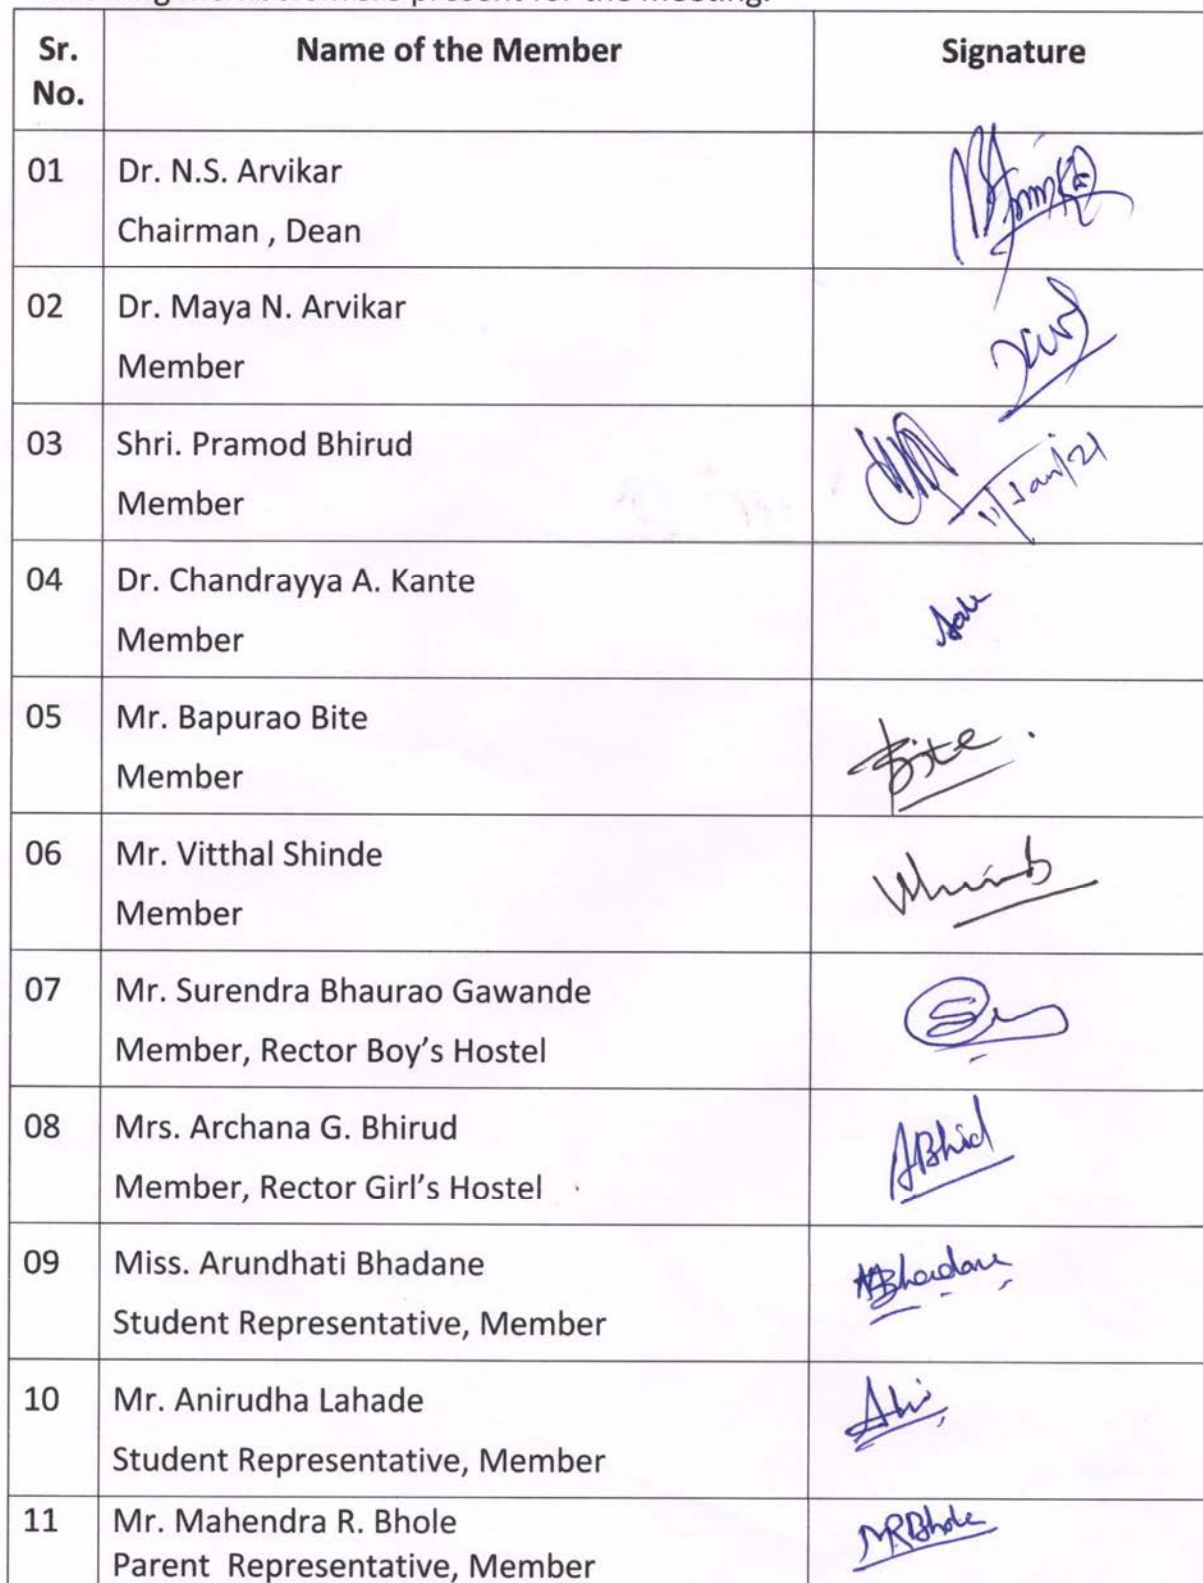 members were present for the meeting.
Sr. No. Name of the Member Signature
01 Dr. N.S. Arvikar
Chairman , Dean
02 Dr. Maya N. Arvikar
Member
03 Shri. Pramod Bhirud
Member 11/Jan/21
04 Dr. Chandrayya A. Kante
Member
05 Mr. Bapurao Bite Bite.
Member
06 Mr. Vitthal Shinde
Member
07 Mr. Surendra Bhaurao Gawande
Member, Rector Boy's Hostel
08 Mrs. Archana G. Bhirud
Member, Rector Girl's Hostel
09 Miss. Arundhati Bhadane ABhadane
Student Representative, Member
10 Mr. Anirudha Lahade
Student Representative, Member
11 Mr. Mahendra R. Bhole MRBhole
Parent Representative, Member